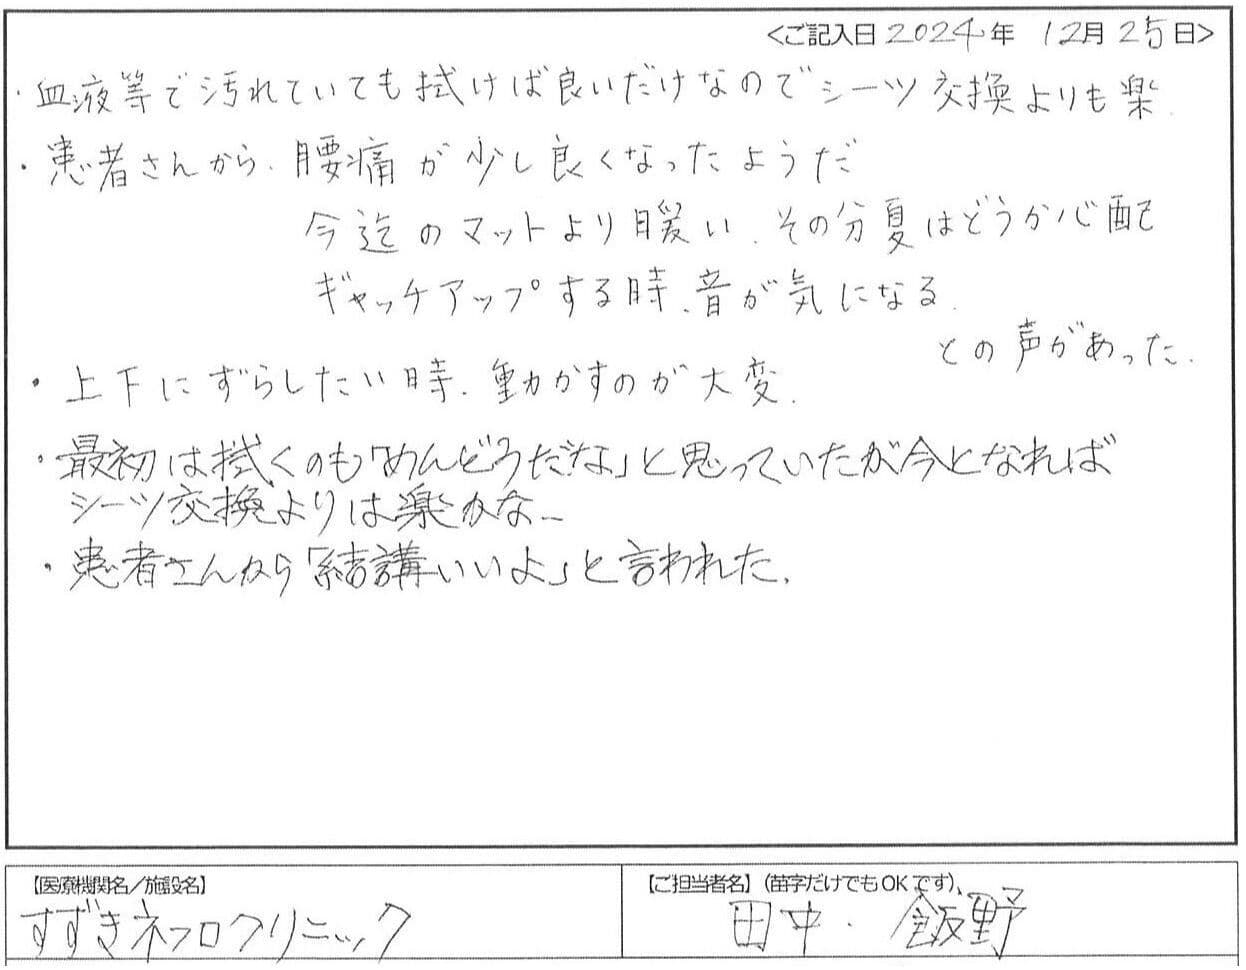 <ご記入日 2024年 12月 25日>
・血液等で汚れていても拭けば良いだけなのでシーツ交換よりも楽.
・患者さんから、腰痛が少し良くなったようだ
今迄のマットより暖い、その分夏はどうか心配
ギャッチアップする時、音が気になる.
との声があった.
・上下にずらしたい時、動かすのが大変.
・最初は拭くのも「めんどうだな」と思っていたが今となれば
シーツ交換よりは楽かな–
・患者さんから「結講いいよ」と言われた.
【医療機関名/施設名】
すずきネフロクリニック
【ご担当者名】(苗字だけでもOKです)、
田中・飯野